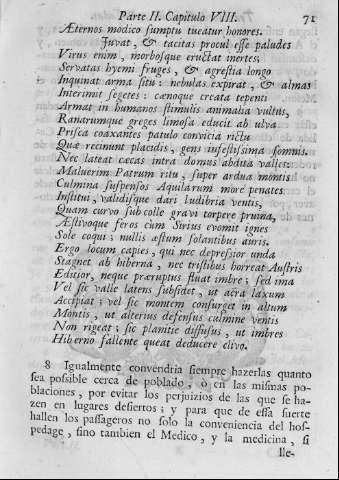 Parte II. Capitulo VIII. 71
Æternos modico sumptu tueatur honores.
Juvat, & tacitas procul esse paludes
Virus enim, morbosque eructat inertes,
Servatas hyemi fruges, & agrestia longo
Inquinat arma situ: nebulas expirat, & almas
Interimit segetes: cænoque creata tepenti
Armat in humanos stimulis animalia vultus,
Ranarumque greges limosa educit ab ulva
Prisca coaxantes patulo convicia rictu
Quæ recinunt placidis, gens infestissima somnis.
Nec lateat cæcas intra domus abdita valles:
Maluerim Patrum ritu, super ardua montis
Culmina suspensos Aquilarum more penates
Institui, validisque dari ludibria ventis,
Quam curvo sub colle gravi torpere pruina,
Æstivoque feros cum Sirius evomit ignes
Sole coqui; nullis æstum solantibus auris.
Ergo locum capies, qui nec depressior unda
Stagnet ab hiberna, nec tristibus horreat Austris
Editior, neque præruptus fluat imbre; sed ima
Vel sic valle latens subsidet, ut aëra laxum
Accipiat; vel sic montem consurget in altum
Montis, ut alterius defensus culmine ventis
Non rigeat; sic planitie diffusus, ut imbres
Hiberno fallente queat deducere clivo.
8 Igualmente convendria siempre hazerlas quanto
sea possible cerca de poblado, ò en las mismas po-
blaciones, por evitar los perjuizios de las que se ha-
zen en lugares desiertos; y para que de essa suerte
hallen los passageros no solo la conveniencia del hos-
pedage, sino tambien el Medico, y la medicina, si
lle-